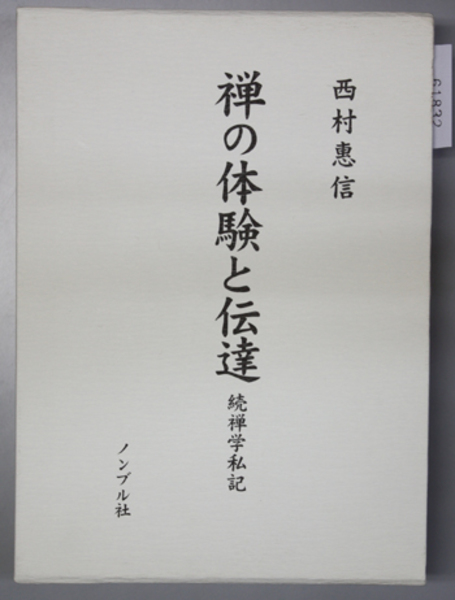 西村惠信
禅の体験と伝達
続禅学私記
ノンブル社
61832